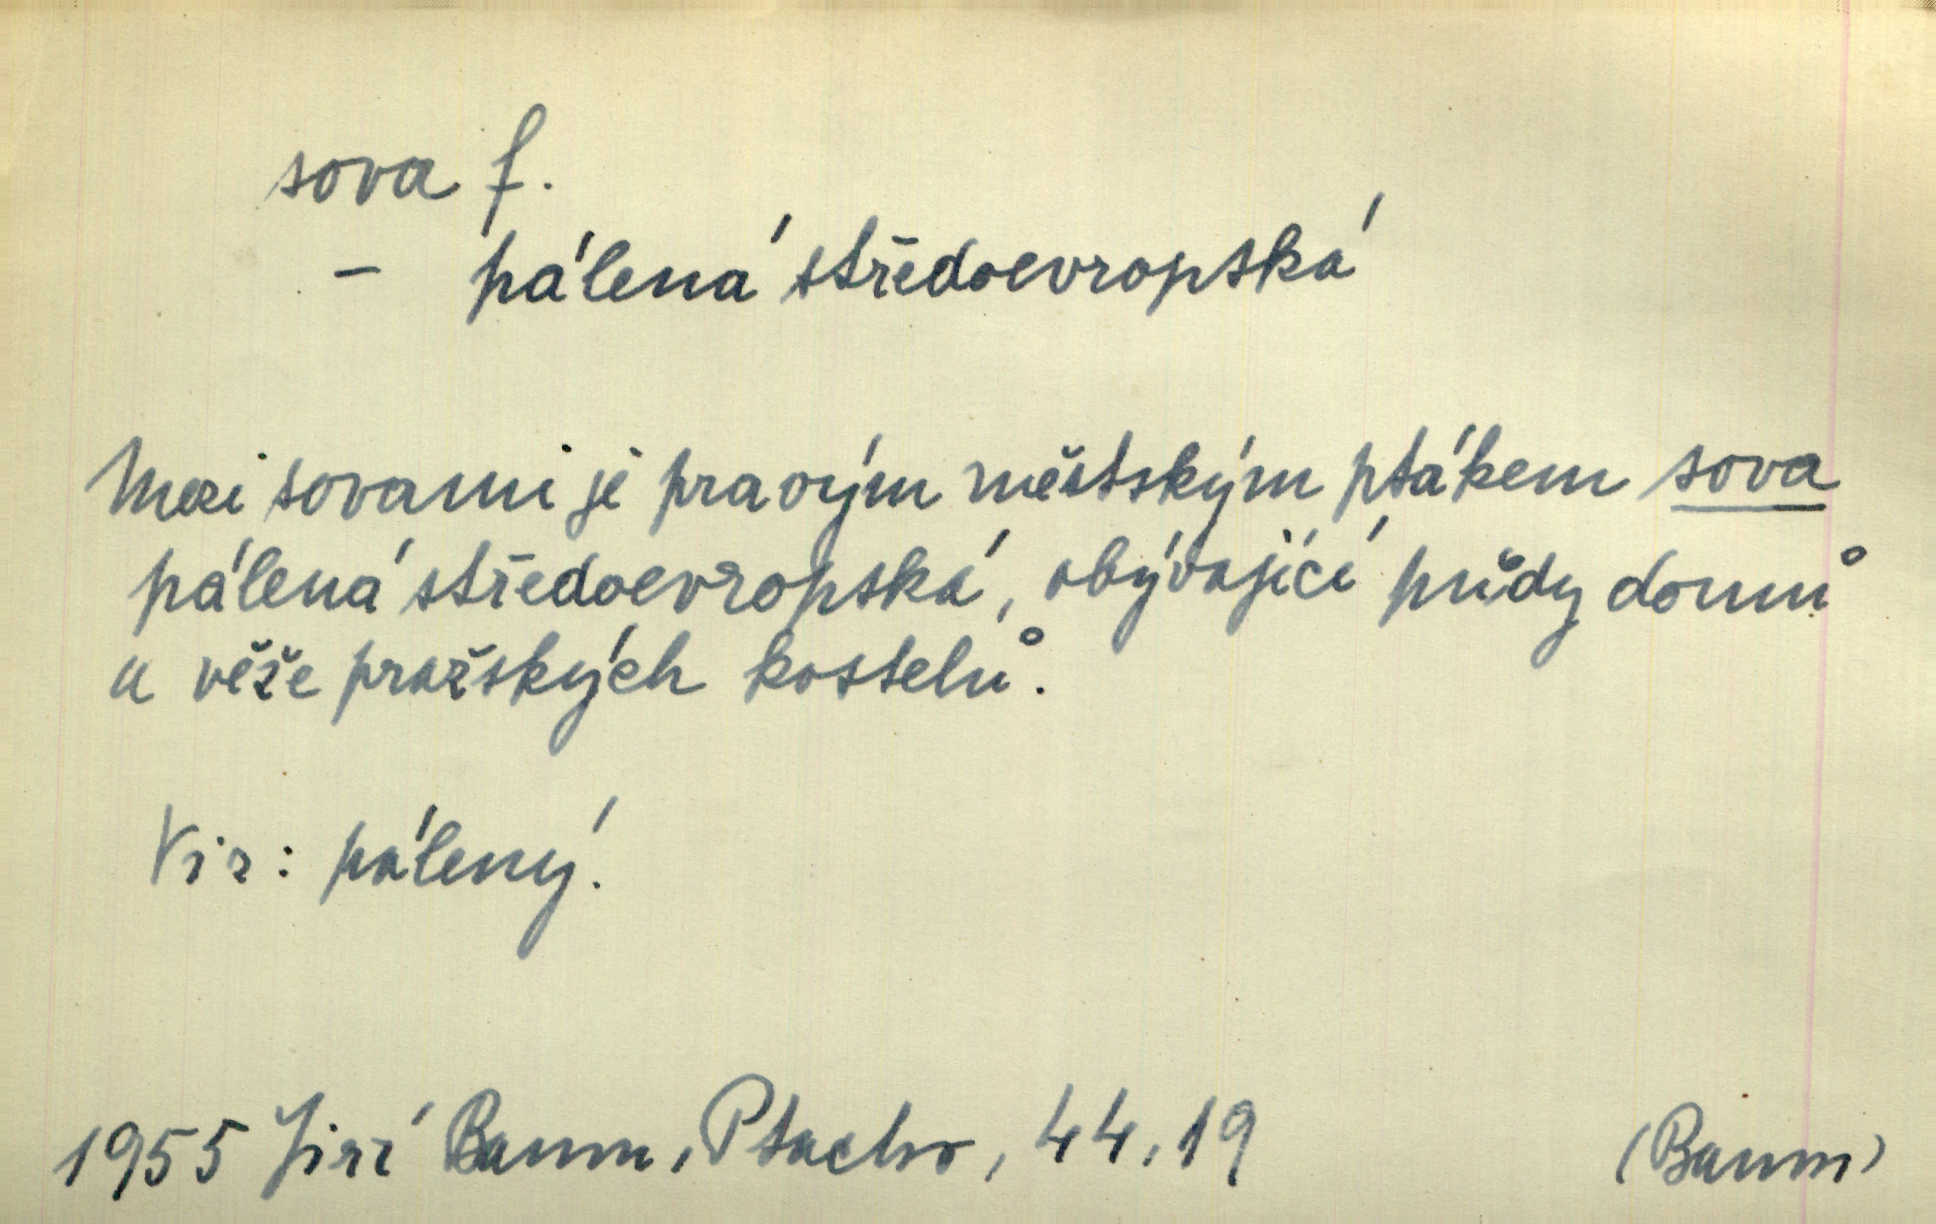 sova f.
– pálená středoevropská
Mezi sovami je pravým městským ptákem sova
pálená středoevropská, obývající půdy domů
a věže pražských kostelů.
Viz: pálený.
1955 Jiří Baum, Ptactvo, 44, 19 (Baum)